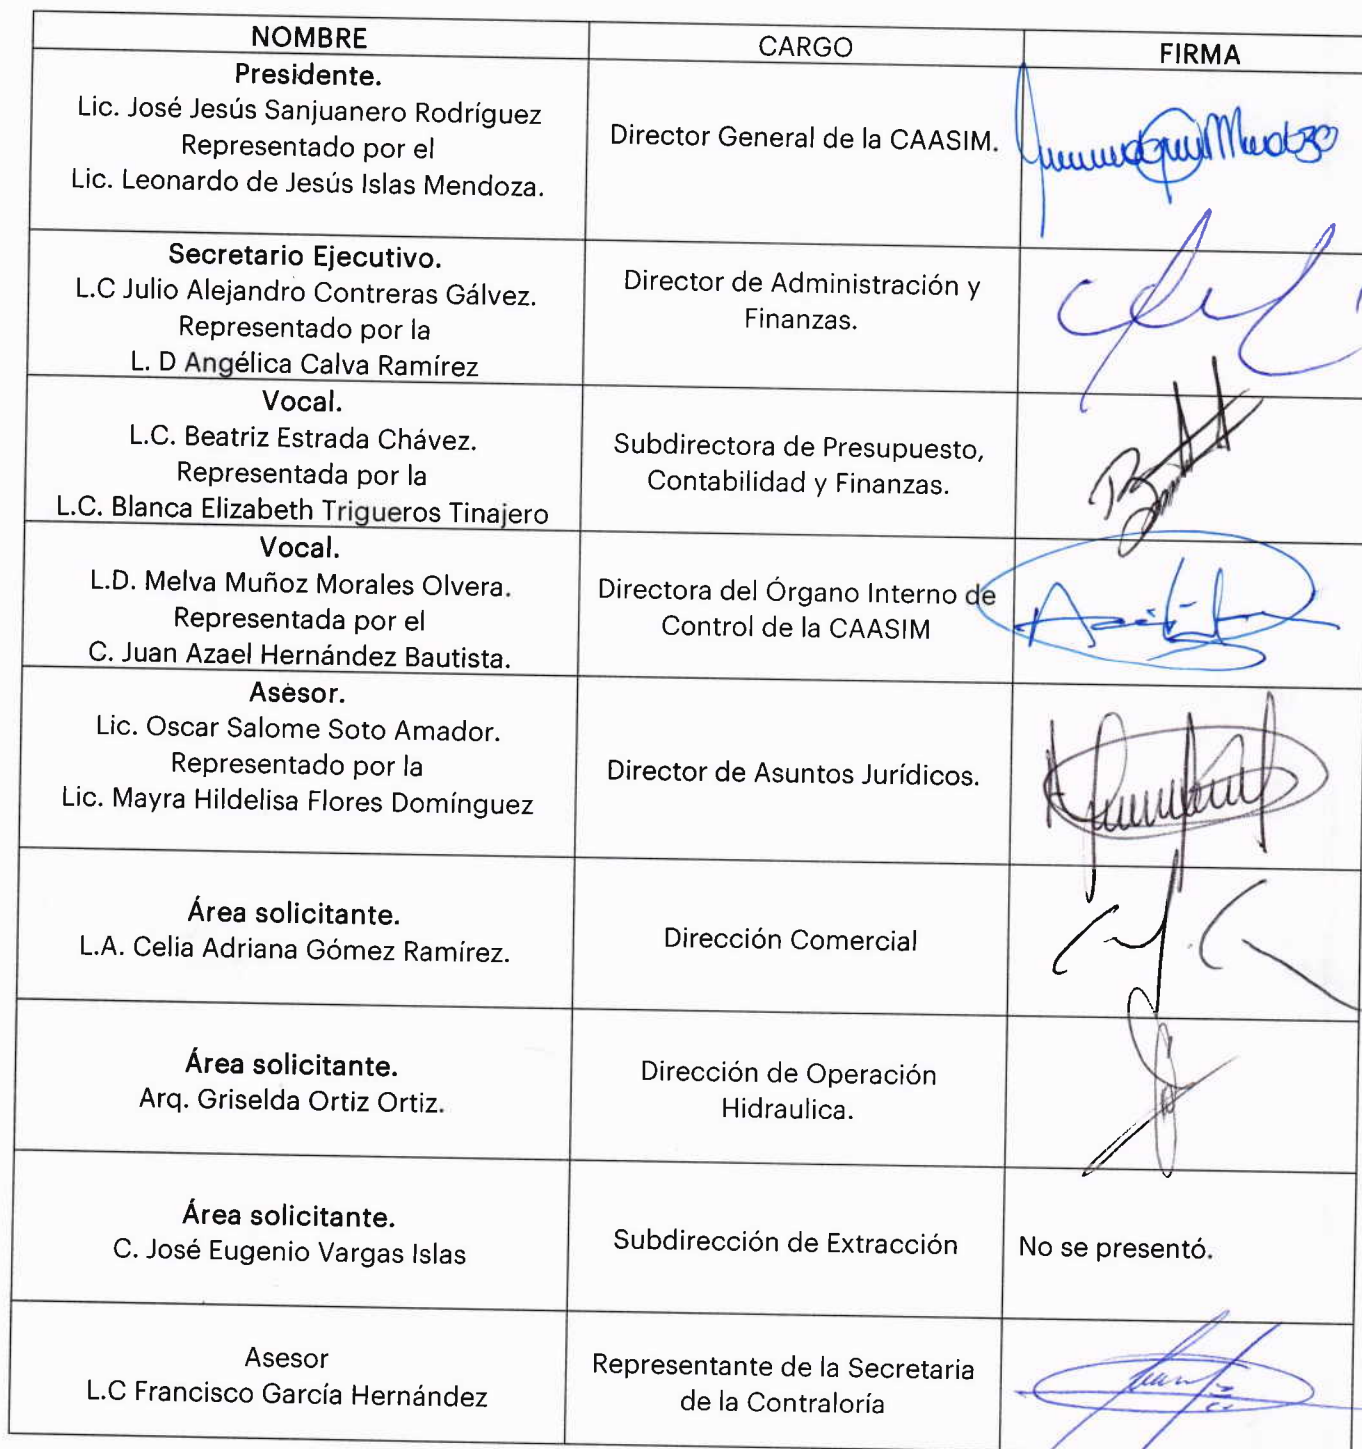 NOMBRE CARGO FIRMA
Presidente.
Lic. José Jesús Sanjuanero Rodríguez
Representado por el
Lic. Leonardo de Jesús Islas Mendoza.
Director General de la CAASIM.
Secretario Ejecutivo.
L.C Julio Alejandro Contreras Gálvez.
Representado por la
L. D Angélica Calva Ramírez
Director de Administración y
Finanzas.
Vocal.
L.C. Beatriz Estrada Chávez.
Representada por la
L.C. Blanca Elizabeth Trigueros Tinajero
Subdirectora de Presupuesto,
Contabilidad y Finanzas.
Vocal.
L.D. Melva Muñoz Morales Olvera.
Representada por el
C. Juan Azael Hernández Bautista.
Directora del Órgano Interno de
Control de la CAASIM
Asesor.
Lic. Oscar Salome Soto Amador.
Representado por la
Lic. Mayra Hildelisa Flores Domínguez
Director de Asuntos Jurídicos.
Área solicitante.
L.A. Celia Adriana Gómez Ramírez.
Dirección Comercial
Área solicitante.
Arq. Griselda Ortiz Ortiz.
Dirección de Operación
Hidraulica.
Área solicitante.
C. José Eugenio Vargas Islas
Subdirección de Extracción
No se presentó.
Asesor
L.C Francisco García Hernández
Representante de la Secretaria
de la Contraloría